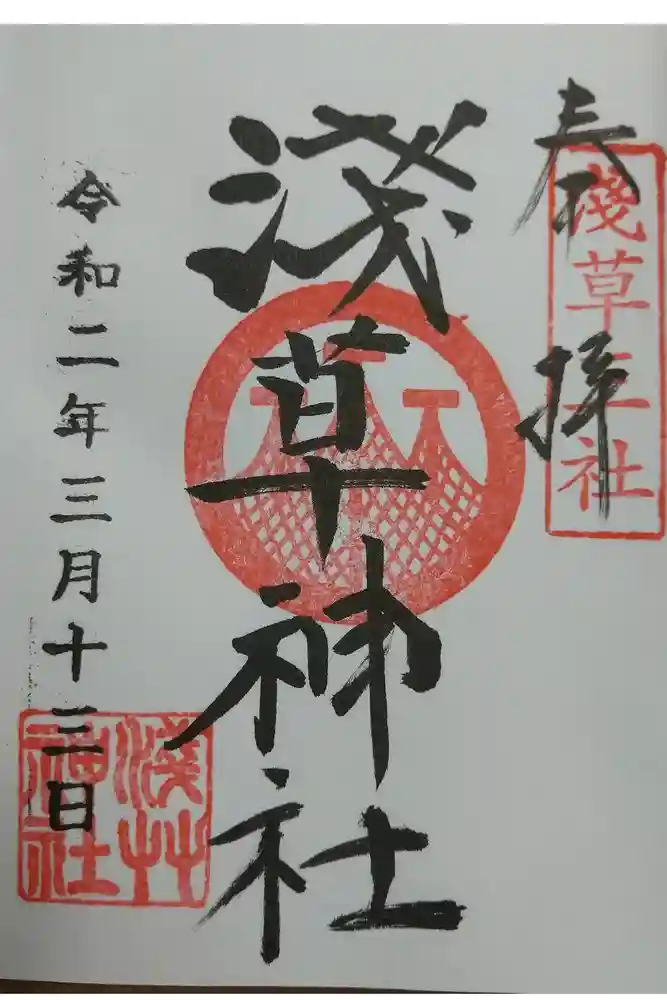 奉拝
淺草三社
淺草神社
令和二年三月十三日
淺草神社